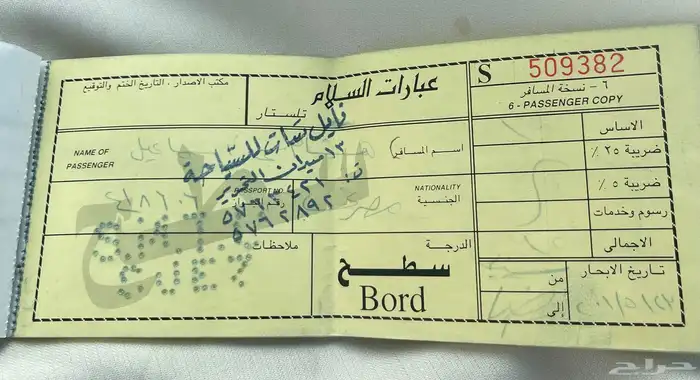 S 509382
٦ - نسخة المسافر
6 - PASSENGER COPY
عبارات السلام
تلستار
مكتب الاصدار ، التاريخ الختم والتوقيع
الاساس
ضريبة ٢٥ ٪
ضريبة ٥ ٪
رسوم وخدمات
الاجمالى
تاريخ الابحار
من
إلى
اسم المسافر
NAME OF PASSENGER
NATIONALITY
الجنسية
مصر
PASSPORT NO.
رقم الجواز
الدرجة
سطح
Bord
ملاحظات
نايل سات للسياحة
١٣ ميدان التحرير
٥٧٩٢٨٩٢
سطح
SUEZ
حراج